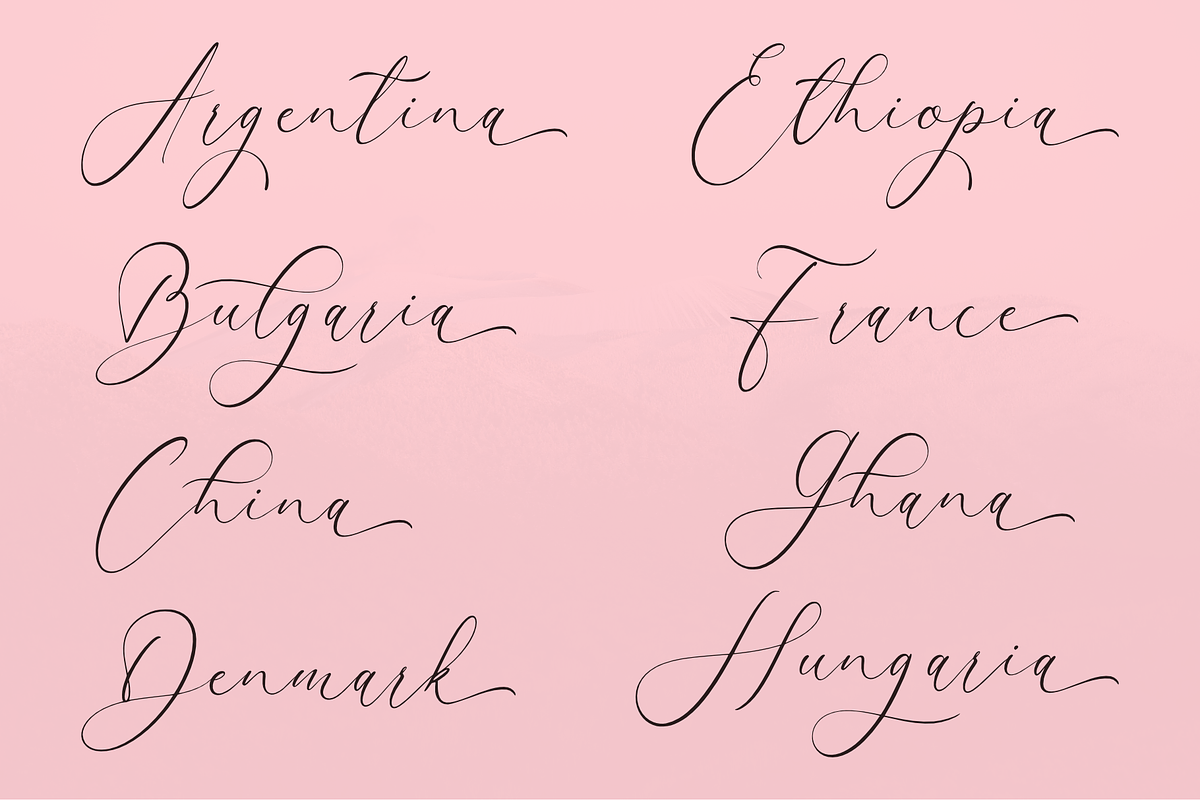 Argentina
Bulgaria
China
Denmark
Ethiopia
France
Ghana
Hungaria